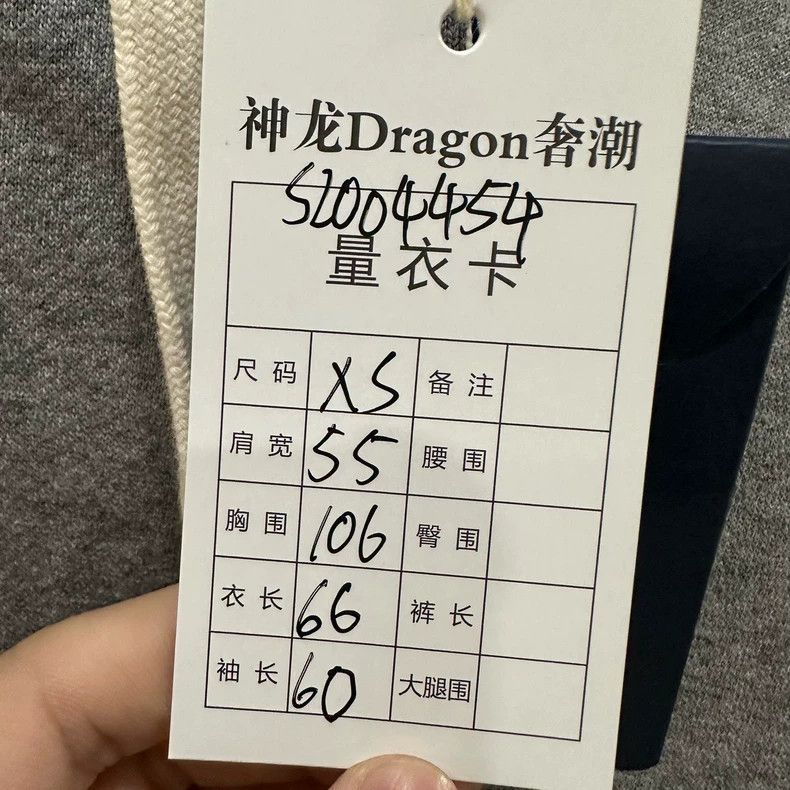 神龙Dragon奢潮
SL004454
量衣卡
尺码 XS 备注
肩宽 55 腰围
胸围 106 臀围
衣长 66 裤长
袖长 60 大腿围